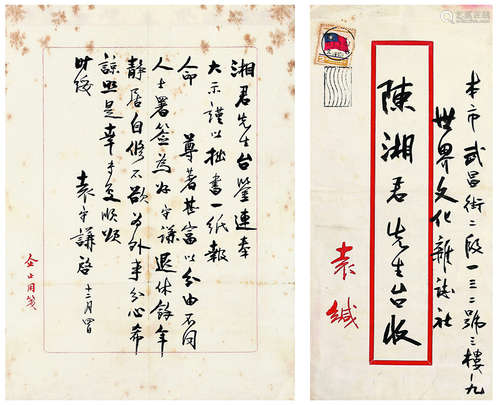 湘君先生台鑒連奉
大示謹以拙書一紙報
命　尊著甚富以分由不同
人士署簽為好守謙退休餘年
靜居自修不欲為外事分心希
諒照是幸專此順頌
時綏
袁守謙啓
十二月
企止用箋
本市武昌街二段一三二號三樓之九
世界文化雜誌社
陳湘君先生台收
袁緘